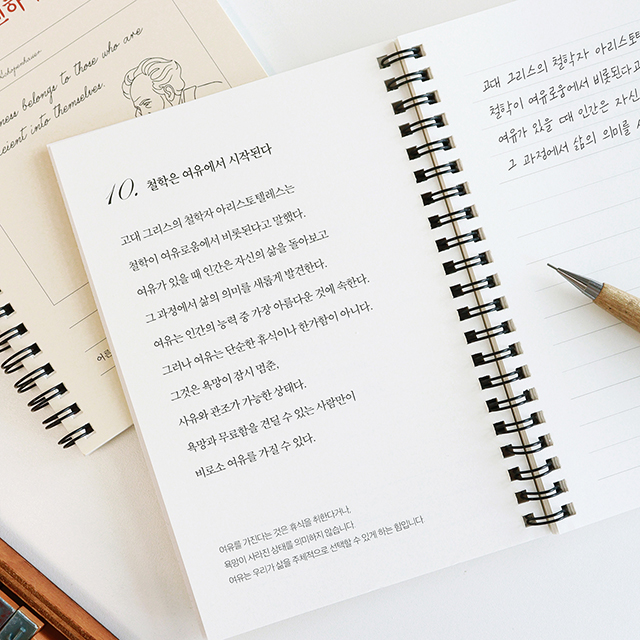 Schopenhauer
belongs to those who are
into themselves.
10. 철학은 여유에서 시작된다
고대 그리스의 철학자 아리스토텔레스는
철학이 여유로움에서 비롯된다고 말했다.
여유가 있을 때 인간은 자신의 삶을 돌아보고
그 과정에서 삶의 의미를 새롭게 발견한다.
여유는 인간의 능력 중 가장 아름다운 것에 속한다.
그러나 여유는 단순한 휴식이나 한가함이 아니다.
그것은 욕망이 잠시 멈춘,
사유와 관조가 가능한 상태다.
욕망과 무료함을 견딜 수 있는 사람만이
비로소 여유를 가질 수 있다.
여유를 가진다는 것은 휴식을 취한다거나,
욕망이 사라진 상태를 의미하지 않습니다.
여유는 우리가 삶을 주체적으로 선택할 수 있게 하는 힘입니다.
고대 그리스의 철학자 아리스토텔
철학이 여유로움에서 비롯된다고
여유가 있을 때 인간은 자신
그 과정에서 삶의 의미를